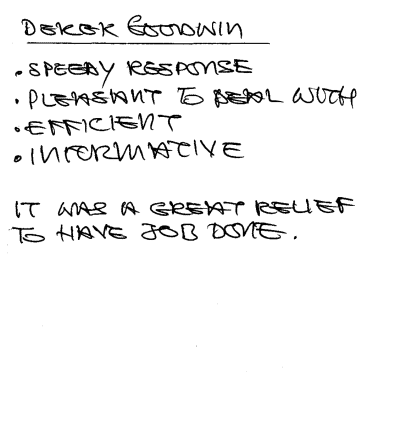 DEREK GOODWIN
• SPEEDY RESPONSE
• PLEASANT TO DEAL WITH
• EFFICIENT
• INFORMATIVE
IT WAS A GREAT RELIEF
TO HAVE JOB DONE.